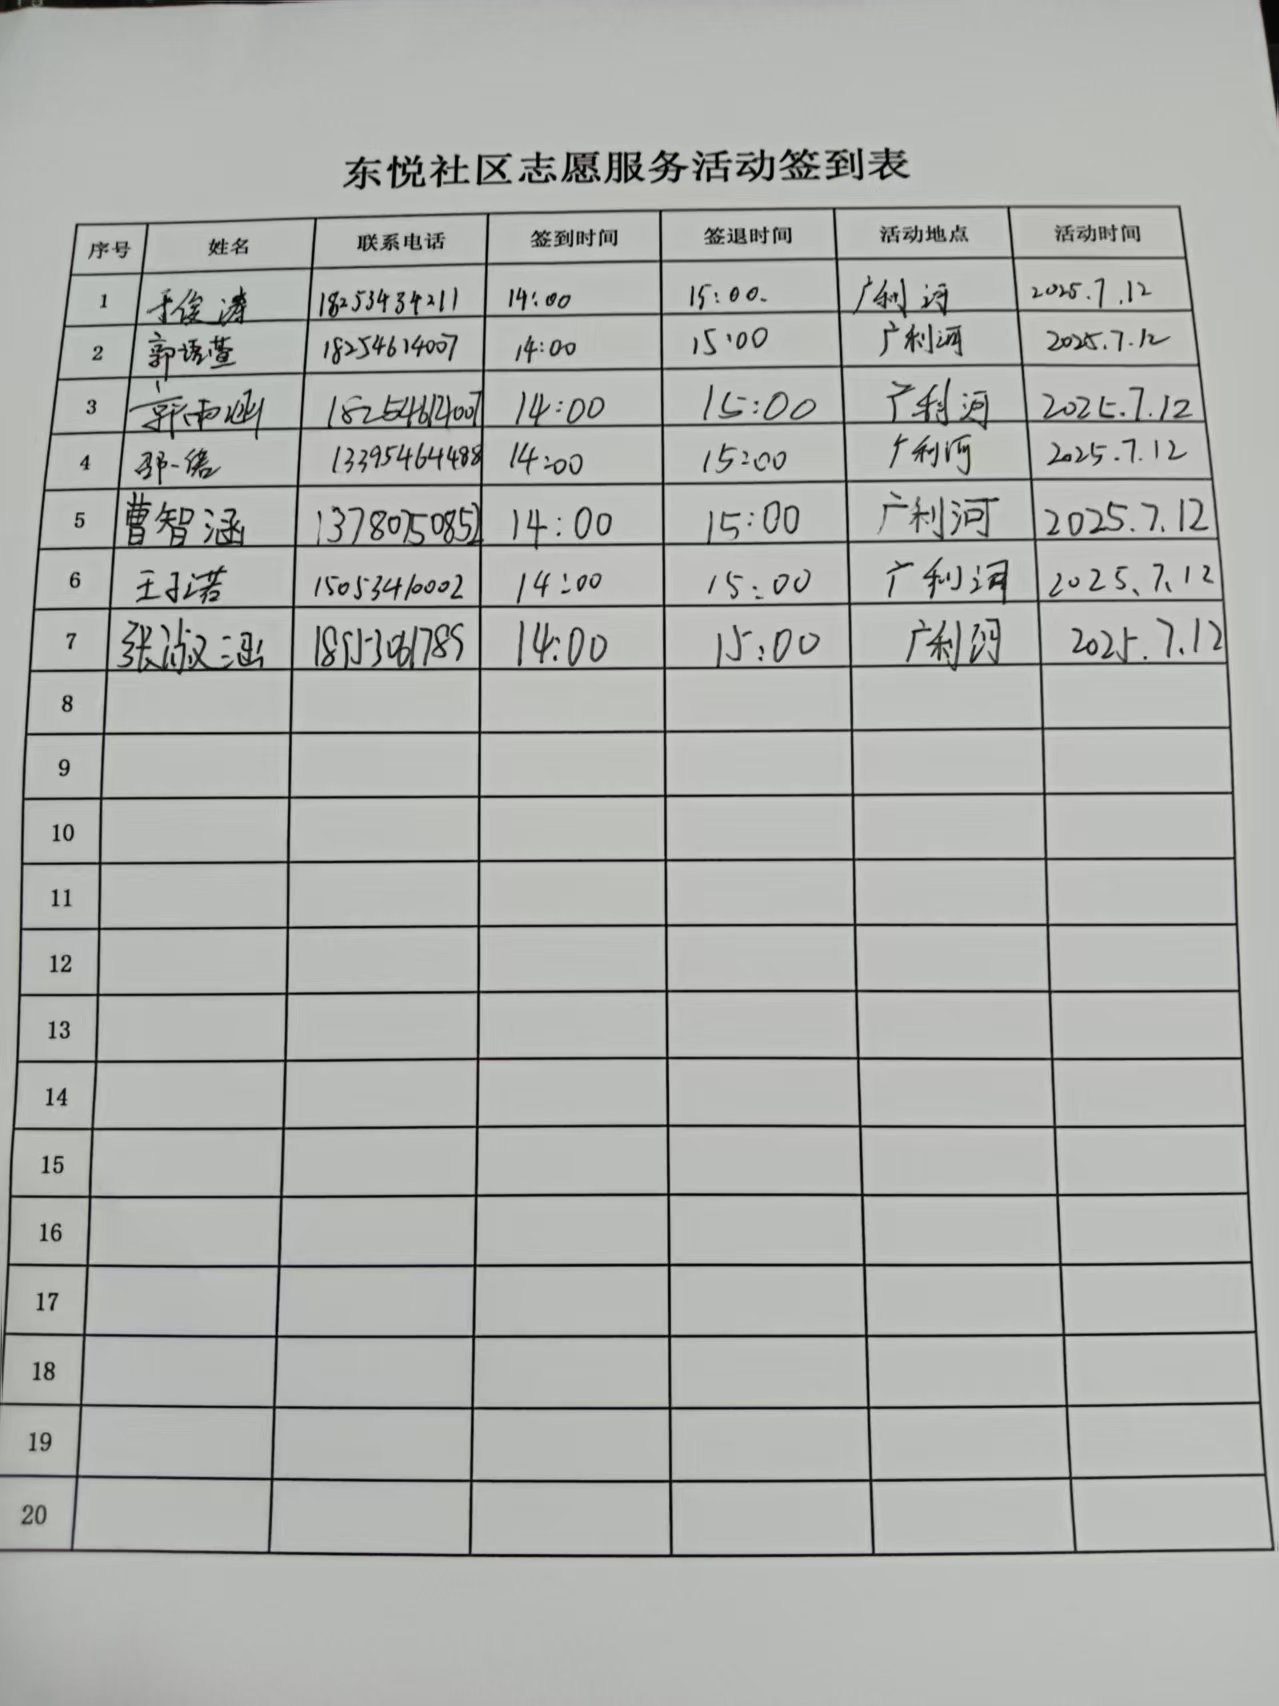 东悦社区志愿服务活动签到表
序号 姓名 联系电话 签到时间 签退时间 活动地点 活动时间
1 于俊涛 18253434211 14:00 15:00. 广利河 2025.7.12
2 郭语萱 18254614007 14:00 15:00 广利河 2025.7.12
3 郭雨涵 18254614007 14:00 15:00 广利河 2025.7.12
4 邵一 13395464488 14:00 15:00 广利河 2025.7.12
5 曹智涵 13780750852 14:00 15:00 广利河 2025.7.12
6 王子诺 15053410002 14:00 15:00 广利河 2025.7.12
7 张淑涵 14:00 15:00 广利河 2025.7.12
8
9
10
11
12
13
14
15
16
17
18
19
20